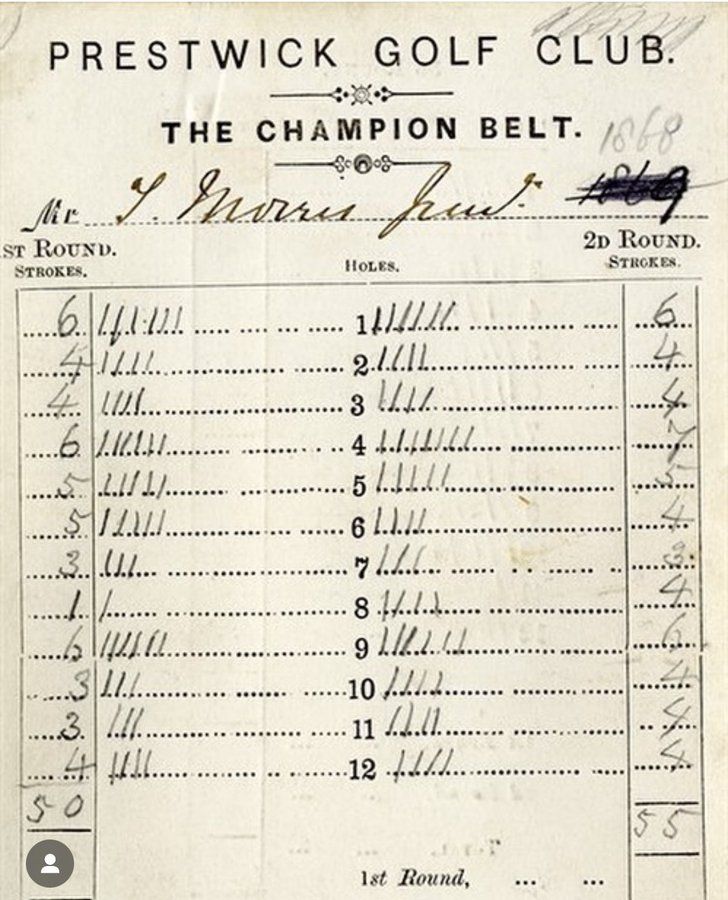 PRESTWICK GOLF CLUB.
THE CHAMPION BELT.
1868
Mr T. Morris Junr.
ST ROUND. STROKES. HOLES. 2D ROUND. STROKES.
6 1 6
4 2 4
4 3 4
6 4 7
5 5 5
5 6 4
3 7 3
1 8 4
6 9 6
3 10 4
3 11 4
4 12 4
50 55
1st Round, ... ...